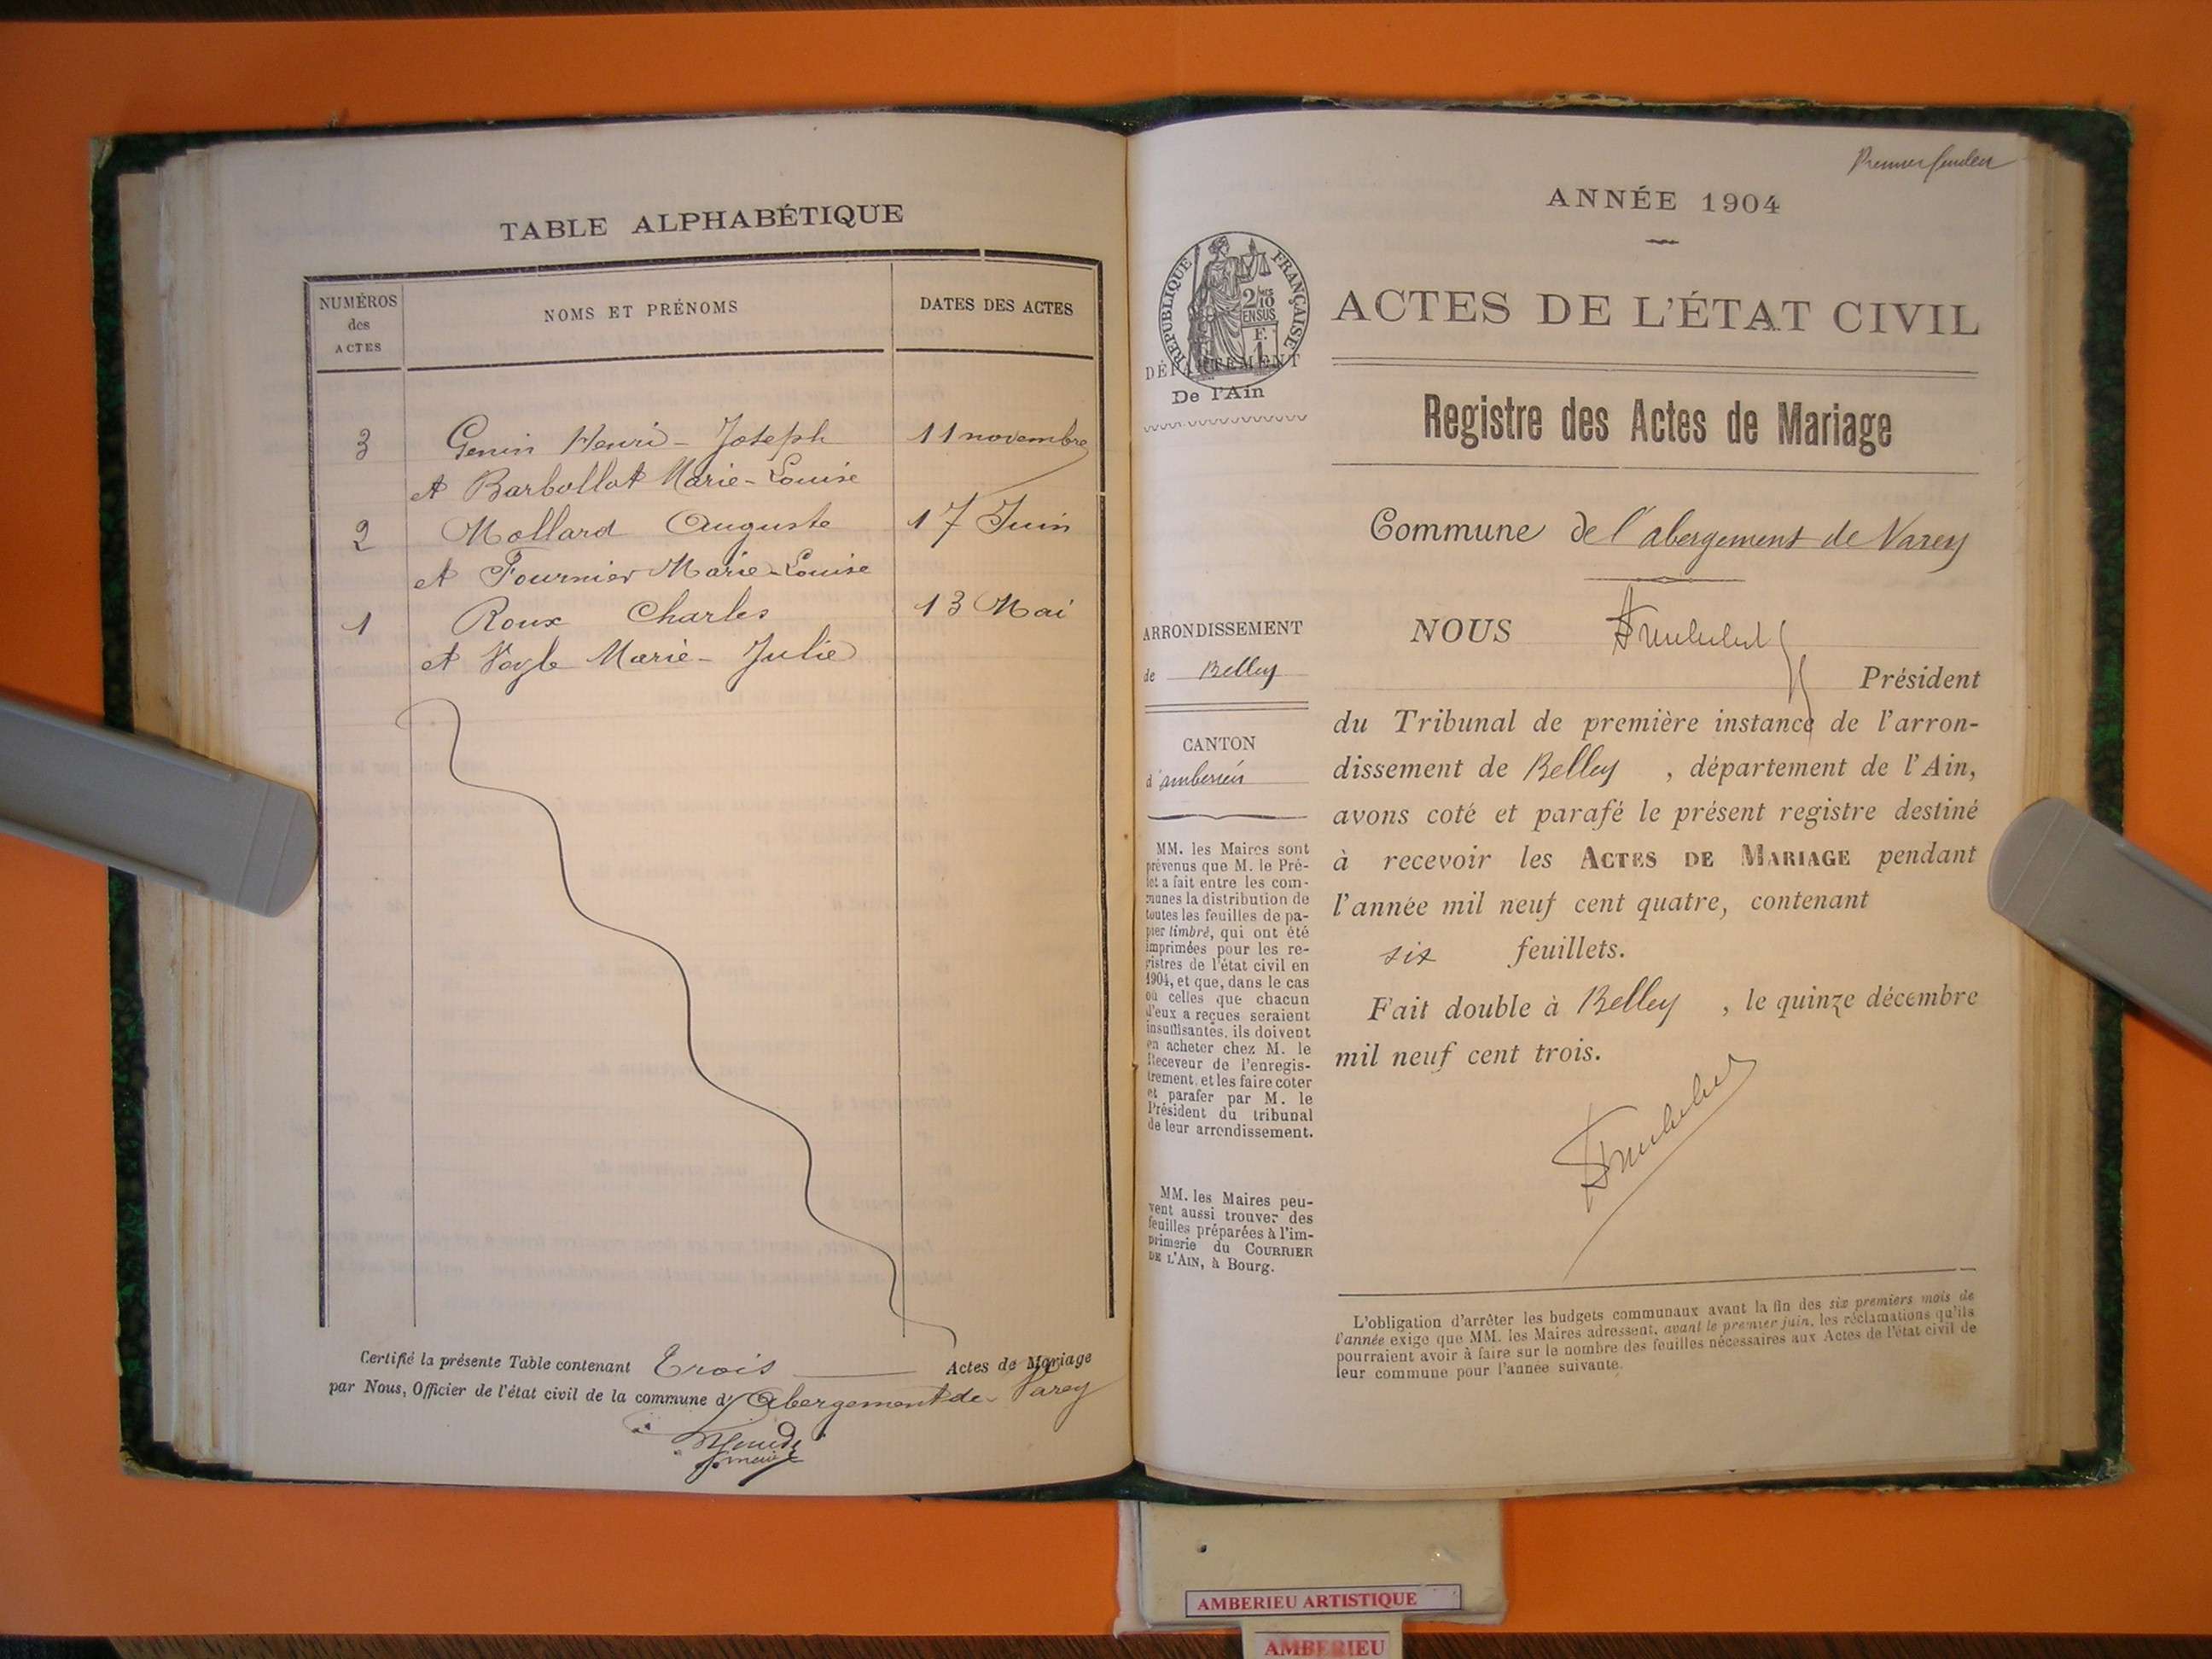 TABLE ALPHABÉTIQUE
NUMÉROS
des
ACTES
NOMS ET PRÉNOMS
DATES DES ACTES
3 Genin Henri - Joseph 11 novembre
et Barbollat Marie-Louise
2 Mollard Auguste 17 Juin
et Fournier Marie-Louise
1 Roux Charles 13 Mai
et Marie - Julie
Certifié la présente Table contenant Trois Actes de Mariage
par Nous, Officier de l'état civil de la commune d' Abergement de Varey
Premier feuillet
ANNÉE 1904
RÉPUBLIQUE FRANÇAISE
2/10
EN SUS
F.
1
ACTES DE L'ÉTAT CIVIL
DÉPARTEMENT
De l'Ain
Registre des Actes de Mariage
Commune de l'abergement de Varey
ARRONDISSEMENT
de Belley
CANTON
d'ambérieu
MM. les Maires sont
prévenus que M. le Pré-
fet a fait entre les com-
munes la distribution de
toutes les feuilles de pa-
pier timbré, qui ont été
imprimées pour les re-
gistres de l'état civil en
1904, et que, dans le cas
où celles que chacun
d'eux a reçues seraient
insuffisantes, ils doivent
en acheter chez M. le
Receveur de l'enregis-
trement, et les faire coter
et parafer par M. le
Président du tribunal
de leur arrondissement.
MM. les Maires peu-
vent aussi trouver des
feuilles préparées à l'im-
primerie du COURRIER
DE L'AIN, à Bourg.
NOUS
Président
du Tribunal de première instance de l'arron-
dissement de Belley , département de l'Ain,
avons coté et parafé le présent registre destiné
à recevoir les ACTES DE MARIAGE pendant
l'année mil neuf cent quatre, contenant
six feuillets.
Fait double à Belley , le quinze décembre
mil neuf cent trois.
L'obligation d'arrêter les budgets communaux avant la fin des six premiers mois de
l'année exige que MM. les Maires adressent, avant le premier juin, les réclamations qu'ils
pourraient avoir à faire sur le nombre des feuilles nécessaires aux Actes de l'état civil de
leur commune pour l'année suivante.
AMBERIEU ARTISTIQUE
AMBERIEU